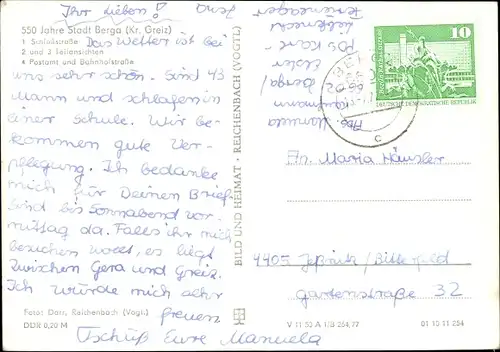 Ihr Lieben!
550 Jahre Stadt Berga (Kr. Greiz)
1 Schloßstraße Das Wetter ist bei
2 und 3 Teilansichten
4 Postamt und Bahnhofstraße
uns sehr schön. Sind 43
Mann und schlafen in
einer Schule. Wir be-
kommen gute Ver-
pflegung. Ich bedanke
mich für Deinen Brief.
Sind bis Sonnabend vor-
mittag da. Falls ihr mich
besuchen wollt, es liegt
zwischen Gera und Greiz.
Ich würde mich sehr
freuen
Foto: Darr, Reichenbach (Vogtl.)
DDR 0,20 M
Tschüß Eure Manuela
BILD UND HEIMAT · REICHENBACH (VOGTL)
Abs. Manuela
6602 Berga/
Elster
10
DEUTSCHE DEMOKRATISCHE REPUBLIK
c
An. Maria Häusler
4405 Jeßnitz/Bitterfeld
Gartenstraße 32
V 11 50 A 1/B 254/77
01 15 11 254